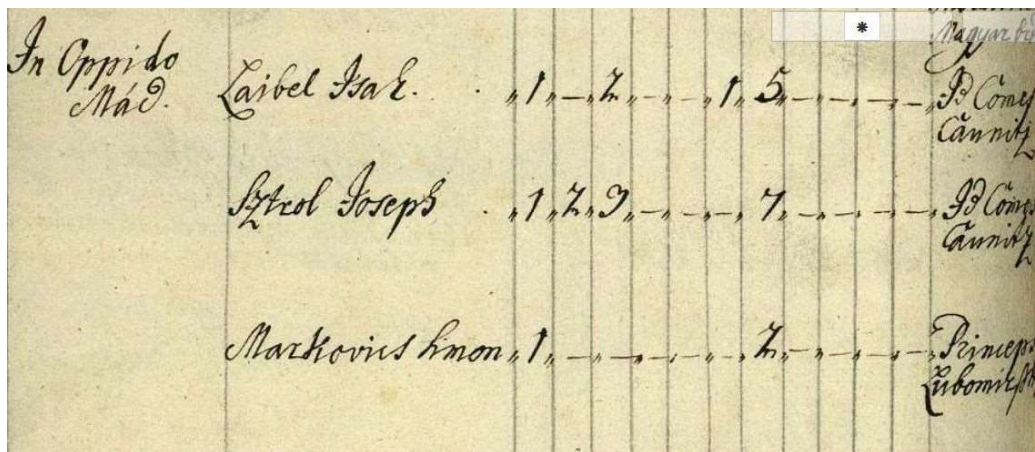 Magyar
In Oppido
Mád.
Laibel Isak. „ 1 „ — „ 2 „ — „ — „ 1 „ 5 „ — „ — „ — „ — „
Comes
Cannitz
Sztrol Joseph . „ 1 „ 2 „ 3 „ — „ — „ — „ 7 „ — „ — „ — „ — „
Comes
Cannitz
Markovics Simon „ 1 „ — „ — „ — „ — „ — „ 2 „ — „ — „ — „ — „
Princeps
Lubomirs